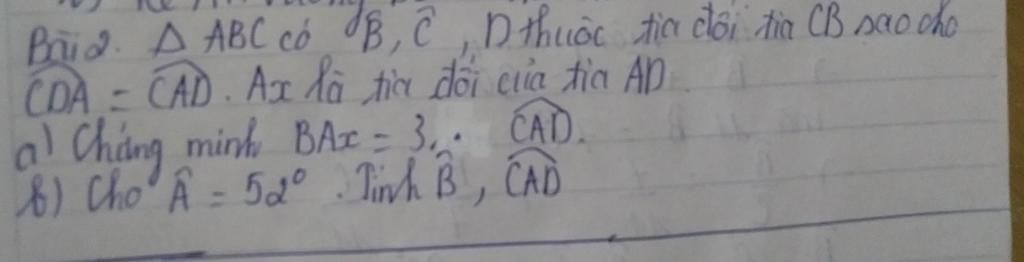 Bài 2. Δ ABC có B̂, Ĉ, D thuộc tia đối tia CB sao cho
\widehat{CDA} = \widehat{CAD}. Ax là tia đối của tia AD.
a) Chứng minh BAx = 3. \widehat{CAD}.
b) Cho Â = 52°. Tính B̂, \widehat{CAD}